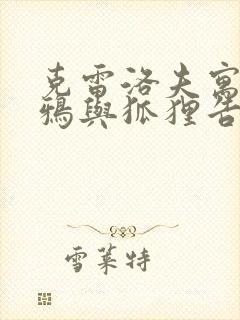 克雷洛夫寓
鴉與狐狸告
雪萊特